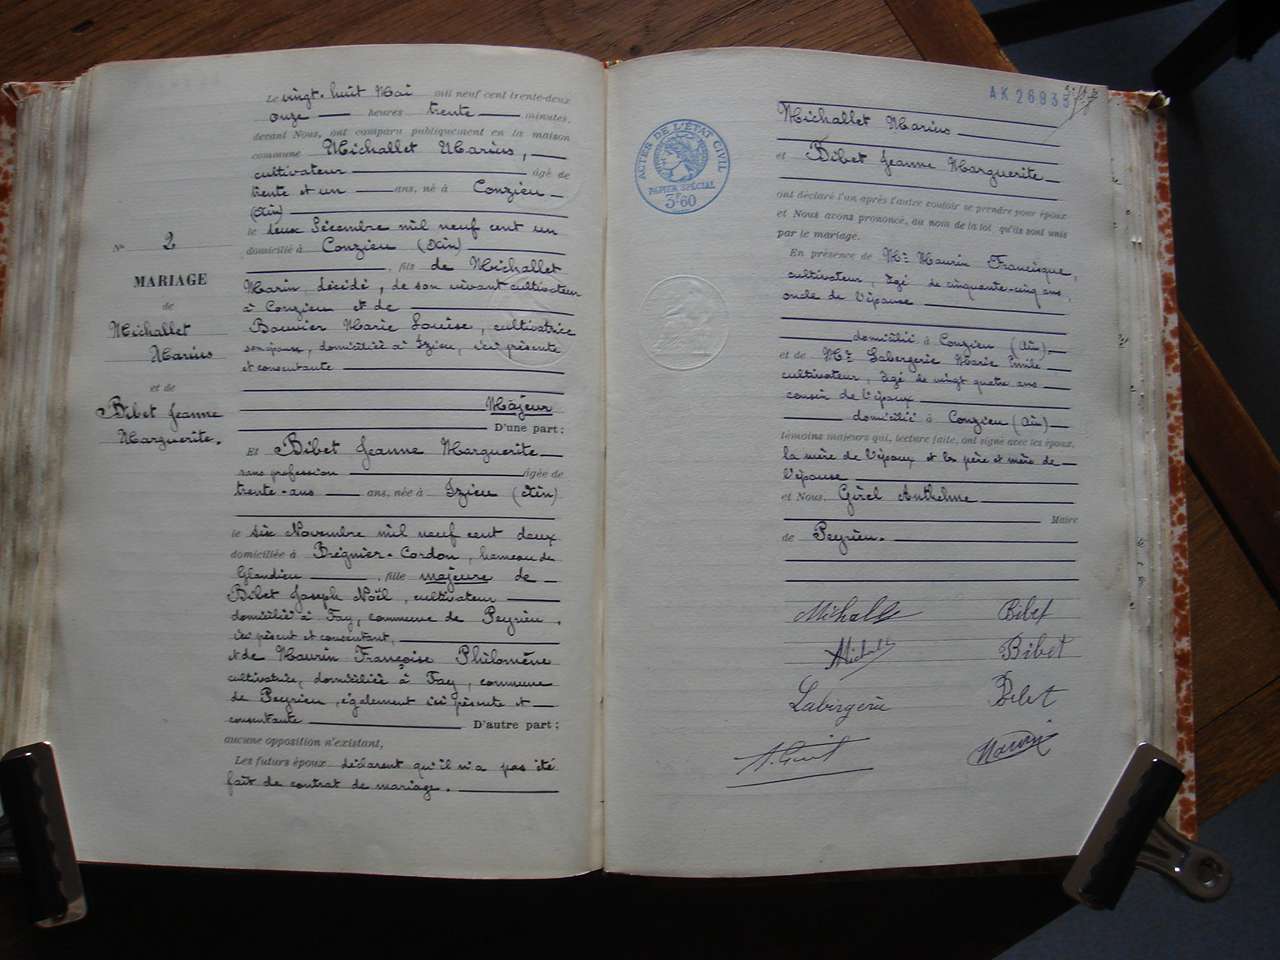 N° 2
MARIAGE
de
Michallet
Marius
et de
Bibet Jeanne
Marguerite.
Le vingt-huit Mai mil neuf cent trente-deux
onze heures trente minutes,
devant Nous, ont comparu publiquement en la maison
commune Michallet Marius,
cultivateur âgé de
trente et un ans, né à Conzieu
(Ain)
le deux Décembre mil neuf cent un
domicilié à Conzieu (Ain)
, fils de Michallet
Marin, décédé, de son vivant cultivateur
à Conzieu et de
Bouvier Marie Louise, cultivatrice
son épouse, domiciliée à Izieu, ici présente
et consentante
Majeur
D'une part:
Et Bibet Jeanne Marguerite
sans profession âgée de
trente-ans ans, née à Izieu (Ain)
le six Novembre mil neuf cent deux
domiciliée à Brégnier-Cordon, hameau de
Glandieu , fille majeure de
Bibet Joseph Noël, cultivateur
domicilié à Fay, commune de Peyrieu,
ici présent et consentant,
et de Maurin Françoise Philomène
cultivatrice, domiciliée à Fay, commune
de Peyrieu, également ici présente et
consentante D'autre part:
aucune opposition n'existant,
Les futurs époux déclarent qu'il n'a pas été
fait de contrat de mariage.
AK 26935
ACTES DE L'ÉTAT CIVIL
PAPIER SPÉCIAL
3F60
Michallet Marius
et Bibet Jeanne Marguerite
ont déclaré l'un après l'autre vouloir se prendre pour époux
et Nous avons prononcé, au nom de la loi qu'ils sont unis
par le mariage.
En présence de Mr Maurin Francisque,
cultivateur, âgé de cinquante-cinq ans,
oncle de l'épouse
domicilié à Conzieu (Ain)
et de Mr Labergerie Marie Emile
cultivateur, âgé de vingt quatre ans
cousin de l'époux
domicilié à Conzieu (Ain)
témoins majeurs qui, lecture faite, ont signé avec les époux,
la mère de l'époux et les père et mère de
l'épouse
et Nous, Girel Anthelme
Maire
de Peyrieu.
Bibet
Bibet
Labergerie Bibet
Maurin